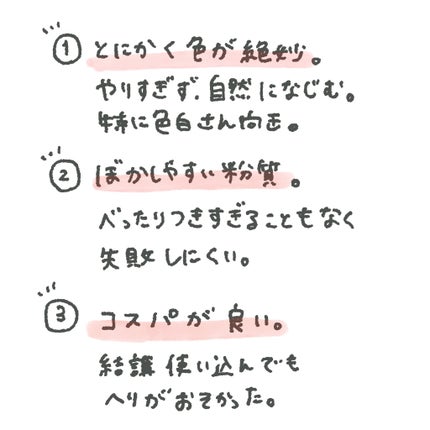 ① とにかく色が絶妙。
やりすぎず、自然になじむ。
特に色白さん向き。
② ぼかしやすい粉質。
べったりつきすぎることもなく
失敗しにくい。
③ コスパが良い。
結構使い込んでも
へりがおそかった。